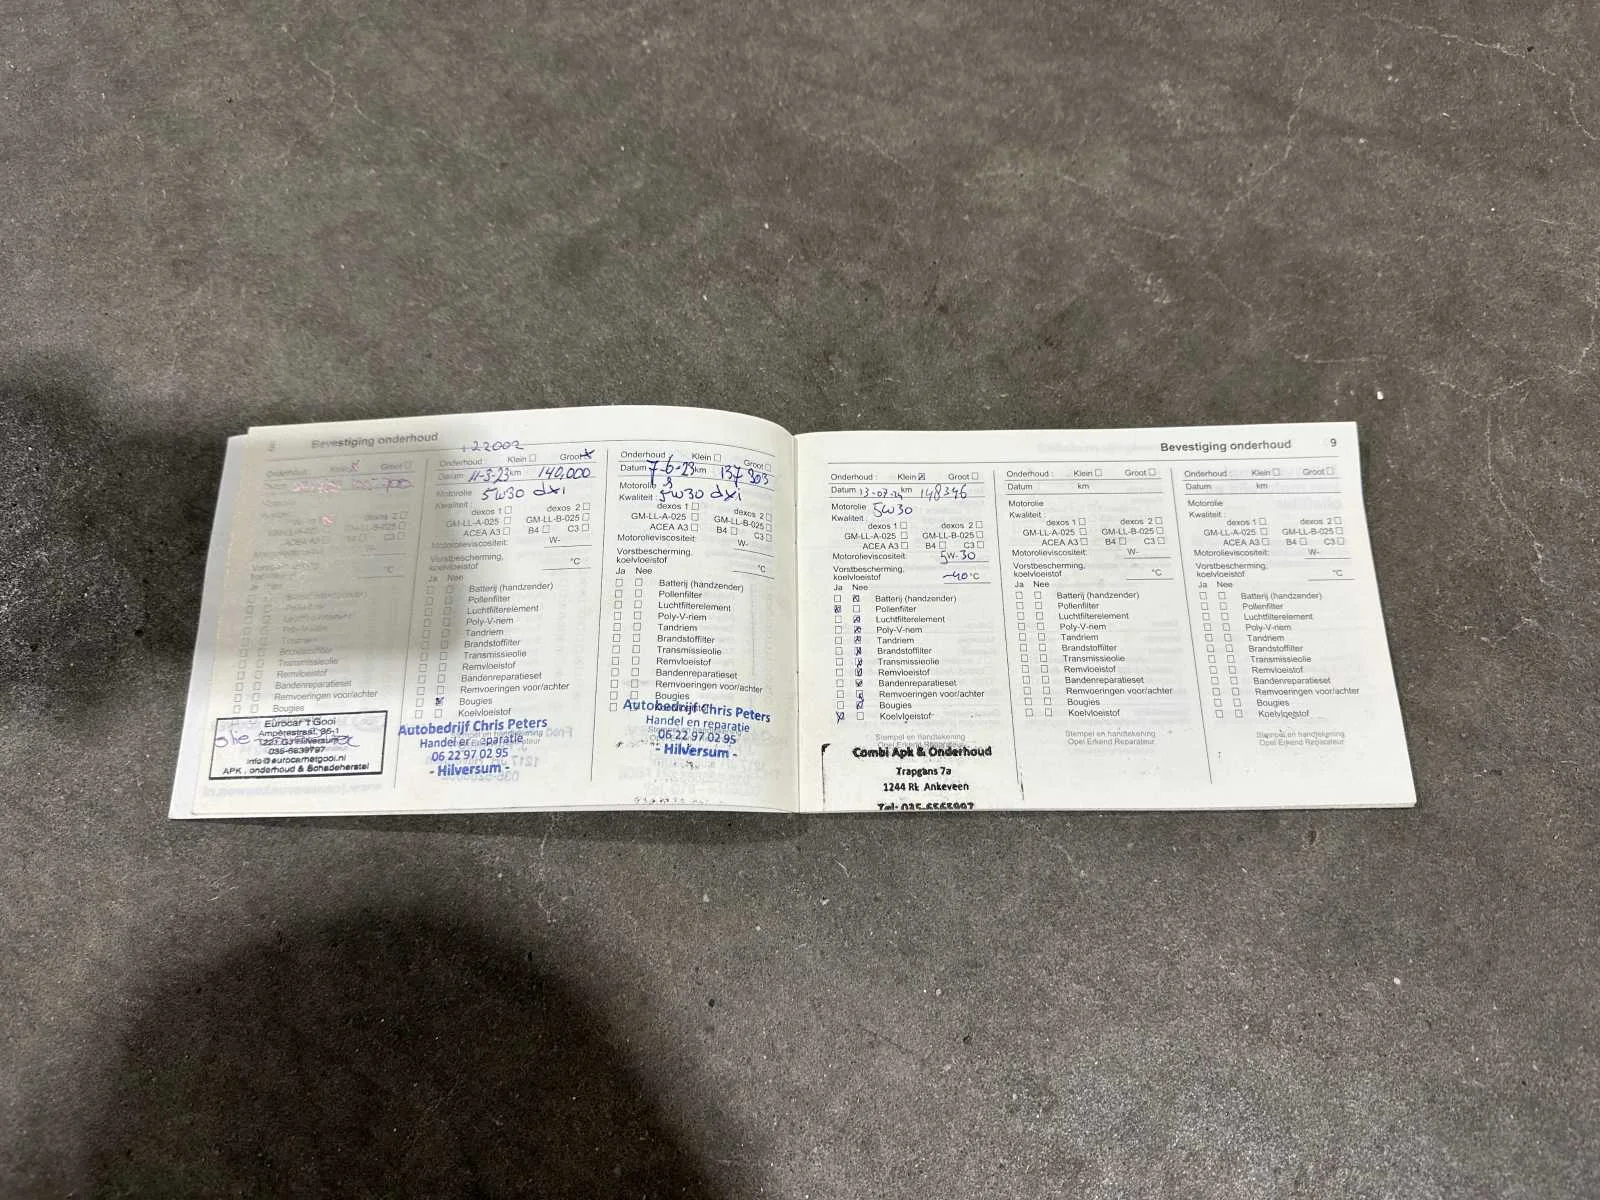 Bevestiging onderhoud
Onderhoud : Klein Groot
Eurocar 't Gooi
info@eurocarnetgooi.nl
APK , onderhoud & Schadeherstel
122002
Onderhoud : Klein Groot
Datum 11-3-23 km 140,000
Motorolie 5W30 dxi
Kwaliteit :
dexos 1 dexos 2
GM-LL-A-025 GM-LL-B-025
ACEA A3 B4 C3
Motorolieviscositeit: W-
Vorstbescherming,
koelvloeistof °C
Ja Nee
Batterij (handzender)
Pollenfilter
Luchtfilterelement
Poly-V-riem
Tandriem
Brandstoffilter
Transmissieolie
Remvloeistof
Bandenreparatieset
Remvoeringen voor/achter
Bougies
Koelvloeistof
Autobedrijf Chris Peters
Handel en reparatie
06 22 97 02 95
- Hilversum -
Onderhoud : Klein Groot
Datum 7-6-23 km 137 303
Motorolie
Kwaliteit : 5w30 dxi
dexos 1 dexos 2
GM-LL-A-025 GM-LL-B-025
ACEA A3 B4 C3
Motorolieviscositeit: W-
Vorstbescherming,
koelvloeistof °C
Ja Nee
Batterij (handzender)
Pollenfilter
Luchtfilterelement
Poly-V-riem
Tandriem
Brandstoffilter
Transmissieolie
Remvloeistof
Bandenreparatieset
Remvoeringen voor/achter
Bougies
Autobedrijf Chris Peters
Handel en reparatie
06 22 97 02 95
- Hilversum -
Bevestiging onderhoud 9
Onderhoud : Klein Groot
Datum km 148346
Motorolie 5W30
Kwaliteit :
dexos 1 dexos 2
GM-LL-A-025 GM-LL-B-025
ACEA A3 B4 C3
Motorolieviscositeit: 5W-30
Vorstbescherming,
koelvloeistof -40 °C
Ja Nee
Batterij (handzender)
Pollenfilter
Luchtfilterelement
Poly-V-riem
Tandriem
Brandstoffilter
Transmissieolie
Remvloeistof
Bandenreparatieset
Remvoeringen voor/achter
Bougies
Koelvloeistof
Stempel en handtekening
Opel Erkend Reparateur
Combi Apk & Onderhoud
Trapgans 7a
1244 RL Ankeveen
Onderhoud : Klein Groot
Datum km
Motorolie
Kwaliteit :
dexos 1 dexos 2
GM-LL-A-025 GM-LL-B-025
ACEA A3 B4 C3
Motorolieviscositeit: W-
Vorstbescherming,
koelvloeistof °C
Ja Nee
Batterij (handzender)
Pollenfilter
Luchtfilterelement
Poly-V-riem
Tandriem
Brandstoffilter
Transmissieolie
Remvloeistof
Bandenreparatieset
Remvoeringen voor/achter
Bougies
Koelvloeistof
Stempel en handtekening
Opel Erkend Reparateur
Onderhoud : Klein Groot
Datum km
Motorolie
Kwaliteit :
dexos 1 dexos 2
GM-LL-A-025 GM-LL-B-025
ACEA A3 B4 C3
Motorolieviscositeit: W-
Vorstbescherming,
koelvloeistof °C
Ja Nee
Batterij (handzender)
Pollenfilter
Luchtfilterelement
Poly-V-riem
Tandriem
Brandstoffilter
Transmissieolie
Remvloeistof
Bandenreparatieset
Remvoeringen voor/achter
Bougies
Koelvloeistof
Stempel en handtekening
Opel Erkend Reparateur